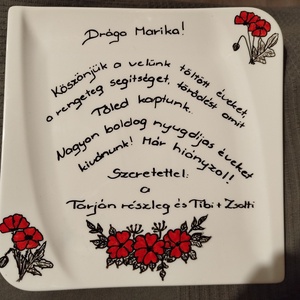 Drága Marika!
Köszönjük a velünk töltött éveket,
a rengeteg segítséget, törődést amit
Tőled kaptunk.
Nagyon boldog nyugdíjas éveket
kívánunk! Már hiányzol!
Szeretettel:
a
Tarján részleg és Tibi + Zsolti